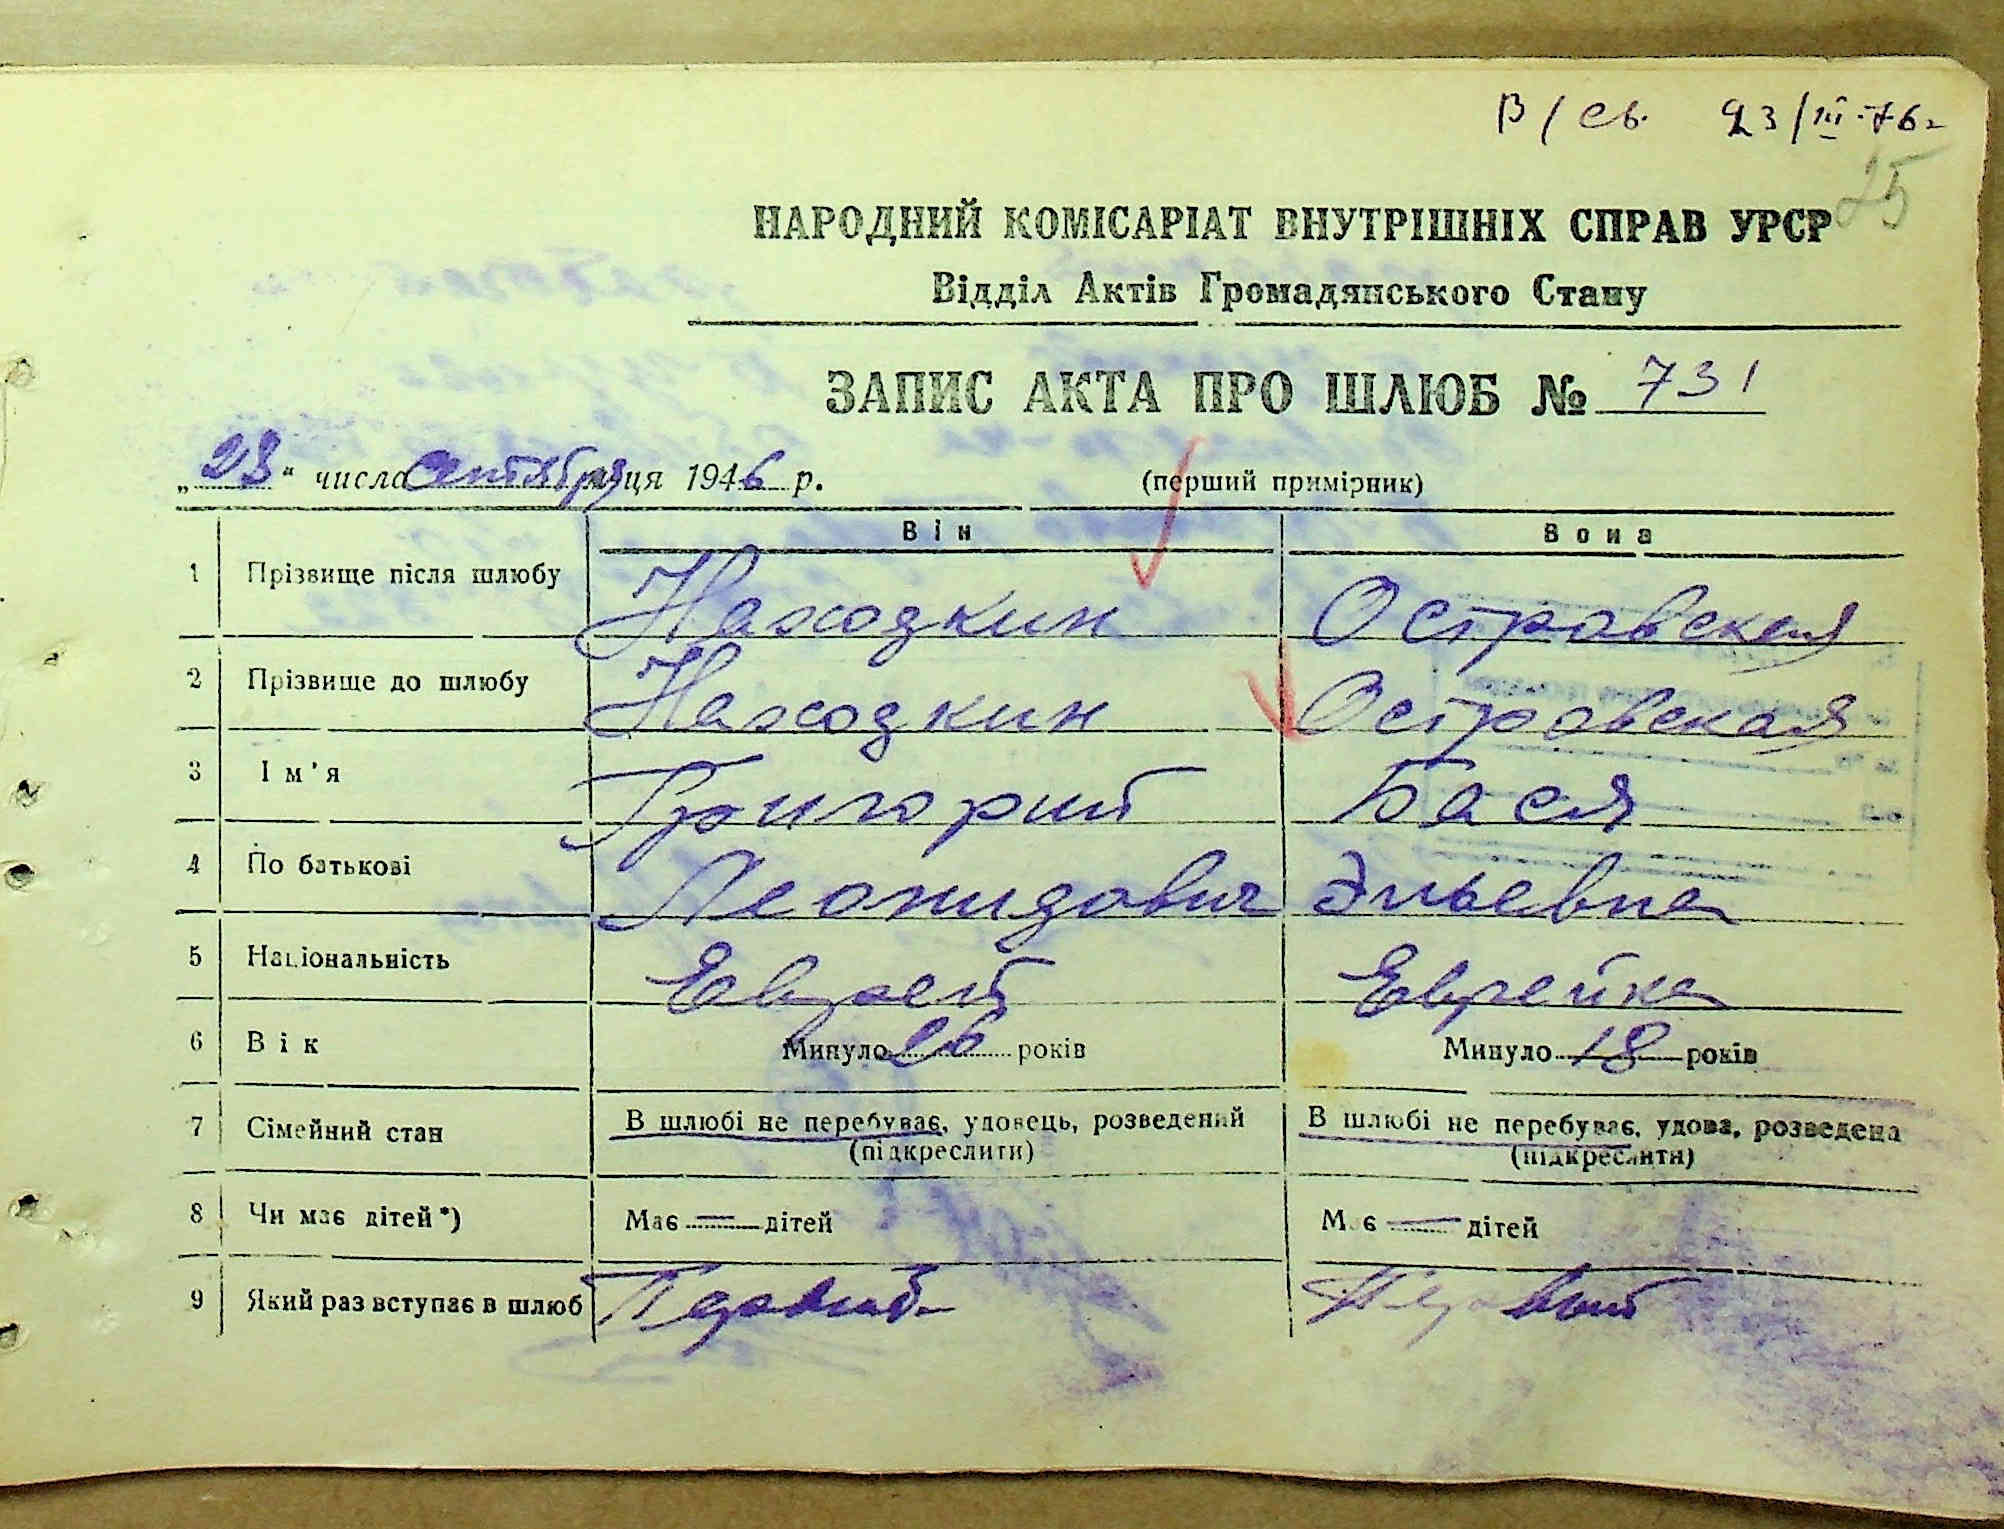 В/св. 23/III-76г
25
НАРОДНИЙ КОМІСАРІАТ ВНУТРІШНІХ СПРАВ УРСР
Відділ Актів Громадянського Стану
ЗАПИС АКТА ПРО ШЛЮБ № 731
„23“ числа сентября місяця 1946 р. (перший примірник)
Він Вона
1 Прізвище після шлюбу Находкин Островская
2 Прізвище до шлюбу Находкин Островская
3 Ім'я Григорий Бася
4 По батькові Леонидович Эльевна
5 Національність Еврей Еврейка
6 Вік Минуло 26 років Минуло 18 років
7 Сімейний стан В шлюбі не перебуває, удовець, розведений В шлюбі не перебуває, удова, розведена
(підкреслити) (підкреслити)
8 Чи має дітей*) Має — дітей Має — дітей
9 Який раз вступає в шлюб Первый Первый